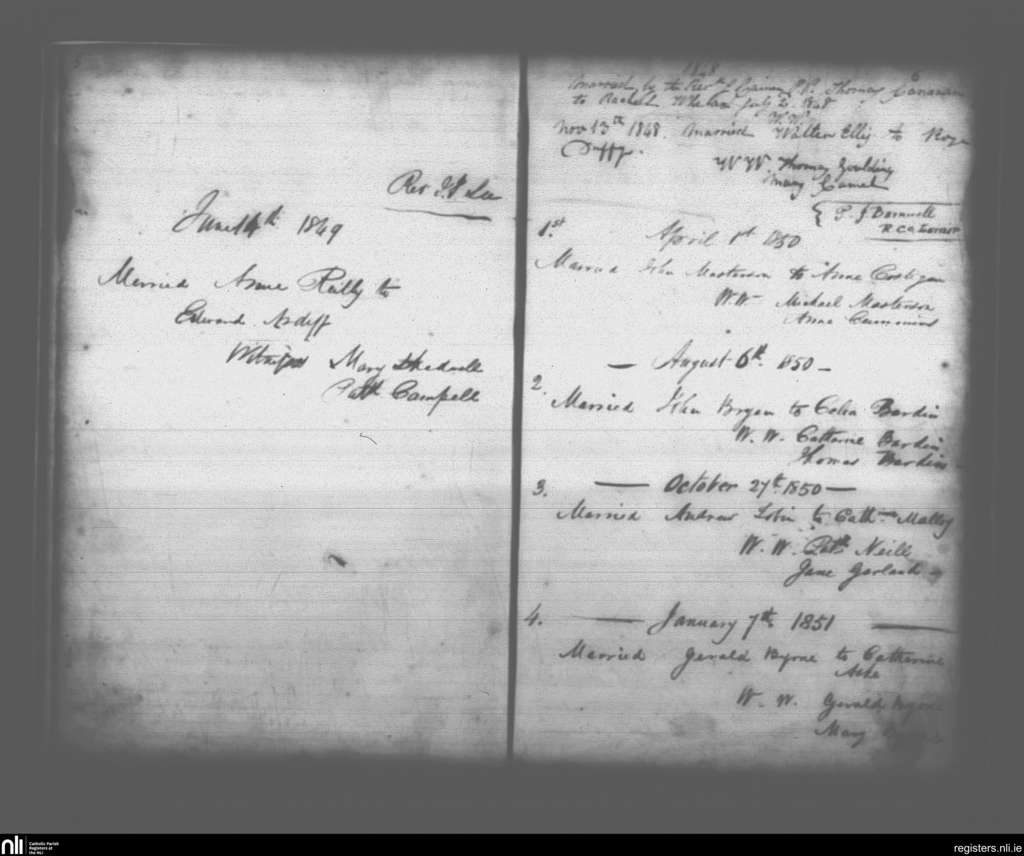 5
Rev J. P. Lee
June 14th 1849
Married Anne Reilly to
Edward Ardiff
Witnesses Mary
Patk Campell
6
1848
Married by the Revd P.P. Thomas
to Rachel Whelan July 2. 1848
W.W.
Nov 13th 1848. Married Walter Ellis to
Duffy.
W W. Thomas Goulding
Mary
P. J Barnwell
R. C. C.
1.st
April 1st 1850
Married John Masterson to Anne Costigan
W.W Michael Masterson
Anne Cummins
— August 6th. 1850 —
2.
Married John Bryan to Celia Bardin
W. W. Catherine Bardin
Thomas Bardin
3. — October 27th. 1850 —
Married Andrew Tobin to Cathne Malloy
W. W. Patk Neill
Jane Garland
4. — January 7th 1851 —
Married Gerald Byrne to Catherine
W. W. Gerald Byrne
Mary
nli
Catholic Parish
Registers at
the NLI
registers.nli.ie